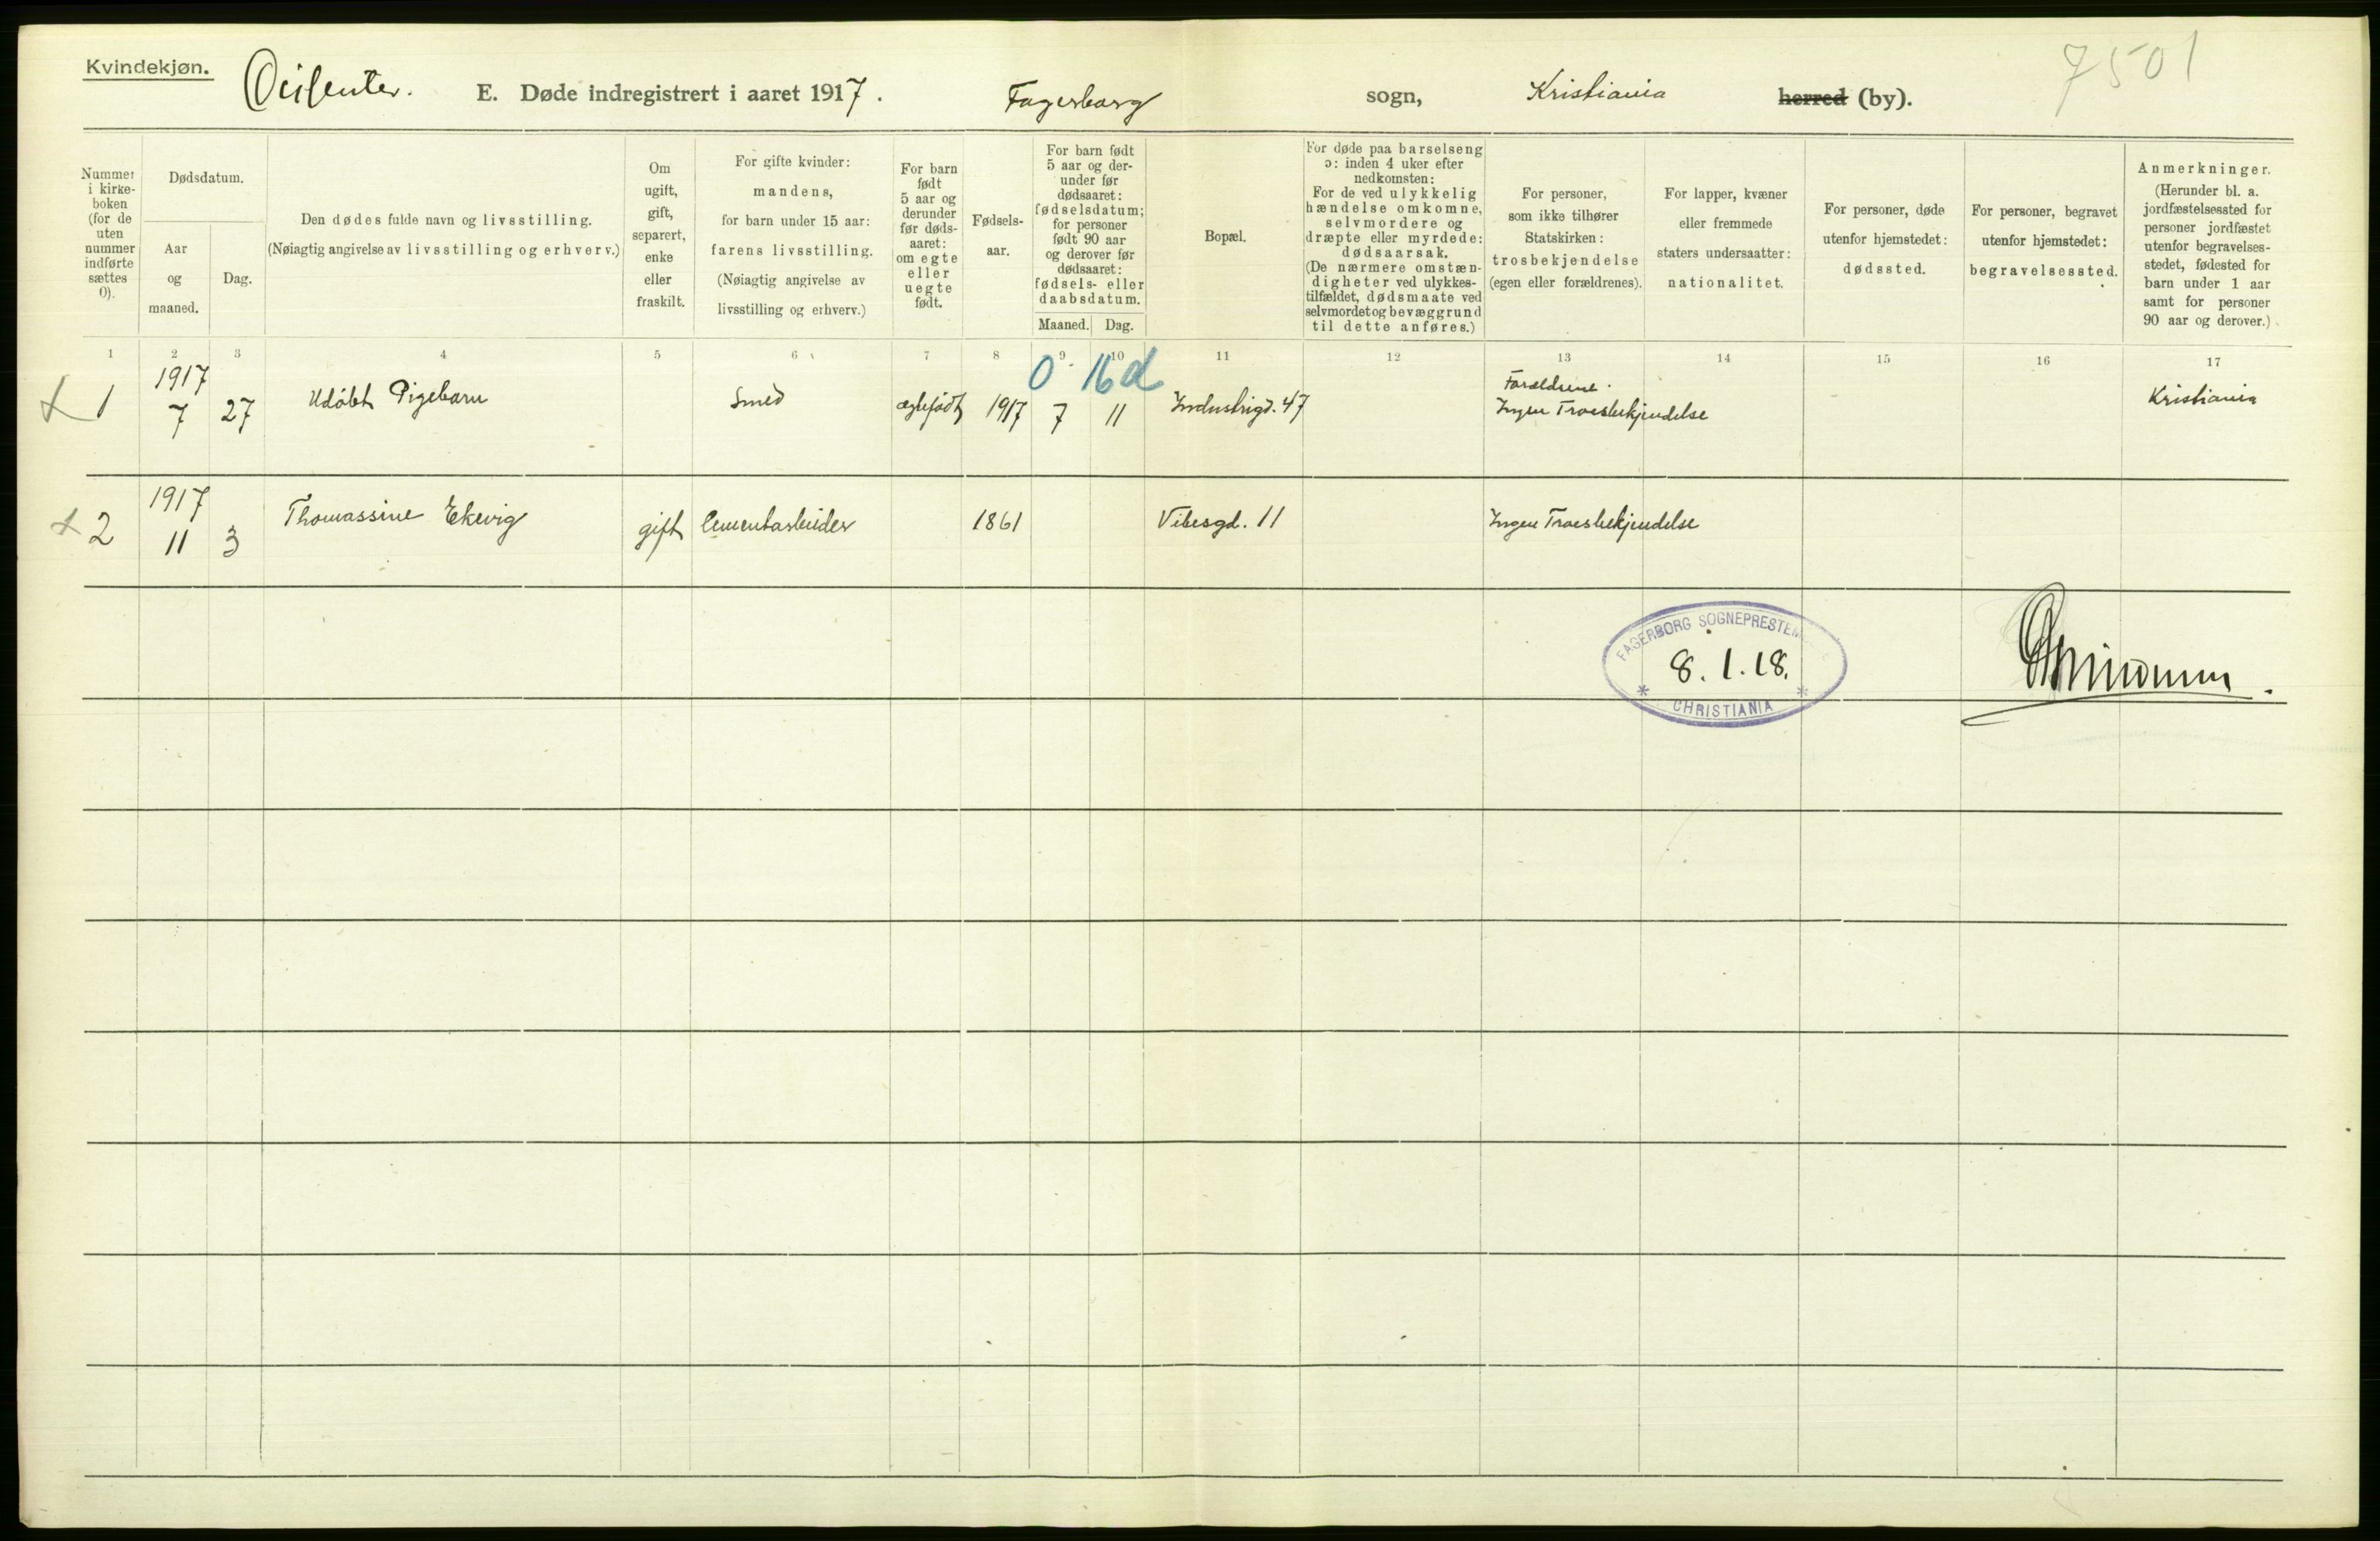 Kvindekjøn.
E. Døde indregistrert i aaret 1917.
Fagerborg sogn, Kristiania herred (by).
7501
Nummer i kirke-
boken
(for de
uten
nummer
indførte
sættes
0).
Dødsdatum.
Aar
og
maaned.
Dag.
Den dødes fulde navn og livsstilling.
(Nøiagtig angivelse av livsstilling og erhverv.)
Om
ugift,
gift,
separert,
enke
eller
fraskilt.
For gifte kvinder:
mandens,
for barn under 15 aar:
farens livsstilling.
(Nøiagtig angivelse av
livsstilling og erhverv.)
For barn
født
5 aar og
derunder
før døds-
aaret:
om egte
eller
uegte
født.
Fødsels-
aar.
For barn født
5 aar og der-
under før
dødsaaret:
fødselsdatum;
for personer
født 90 aar
og derover før
dødsaaret:
fødsels- eller
daabsdatum.
Maaned. Dag.
Bopæl.
For døde paa barselseng
ɔ: inden 4 uker efter
nedkomsten:
For de ved ulykkelig
hændelse omkomne,
selvmordere og
dræpte eller myrdede:
dødsaarsak.
(De nærmere omstæn-
digheter ved ulykkes-
tilfældet, dødsmaate ved
selvmordet og bevæggrund
til dette anføres.)
For personer,
som ikke tilhører
Statskirken:
trosbekjendelse
(egen eller forældrenes).
For lapper, kvæner
eller fremmede
staters undersaatter:
nationalitet.
For personer, døde
utenfor hjemstedet:
dødssted.
For personer, begravet
utenfor hjemstedet:
begravelsessted.
Anmerkninger.
(Herunder bl. a.
jordfæstelsessted for
personer jordfæstet
utenfor begravelses-
stedet, fødested for
barn under 1 aar
samt for personer
90 aar og derover.)
1 2 3 4 5 6 7 8 9 10 11 12 13 14 15 16 17
0 16 d
1 1917 7 27 Udöbt Pigebarn Smed ægtefødt 1917 7 11 Industrigd. 47 Forældrene Ingen Troesbekjendelse Kristiania
2 1917 11 3 Thomassine Ekevig gift Cementarbeider 1861 Vibesgd. 11 Ingen Troesbekjendelse
FAGERBORG SOGNEPRESTEM
8.1.18.
* CHRISTIANIA *